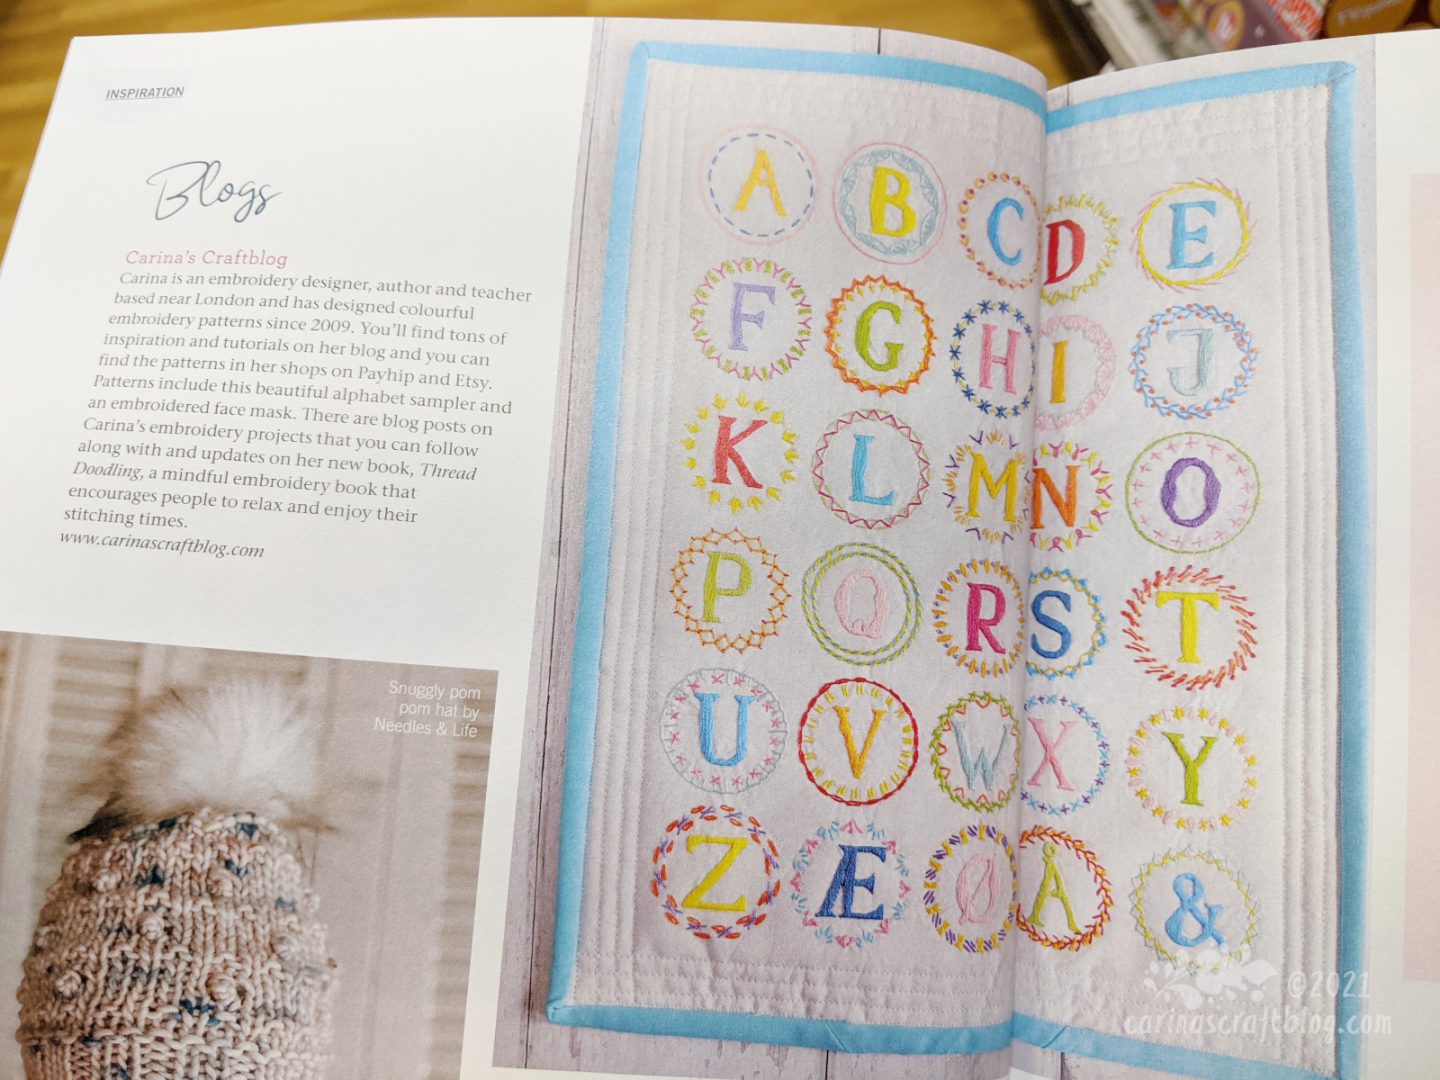 INSPIRATION
Blogs
Carina's Craftblog
Carina is an embroidery designer, author and teacher
based near London and has designed colourful
embroidery patterns since 2009. You'll find tons of
inspiration and tutorials on her blog and you can
find the patterns in her shops on Payhip and Etsy.
Patterns include this beautiful alphabet sampler and
an embroidered face mask. There are blog posts on
Carina's embroidery projects that you can follow
along with and updates on her new book, Thread
Doodling, a mindful embroidery book that
encourages people to relax and enjoy their
stitching times.
www.carinascraftblog.com
Snuggly pom
pom hat by
Needles & Life
A B C D E
F G H I J
K L M N O
P Q R S T
U V W X Y
Z Æ Ø Å &
©2021
carinascraftblog.com